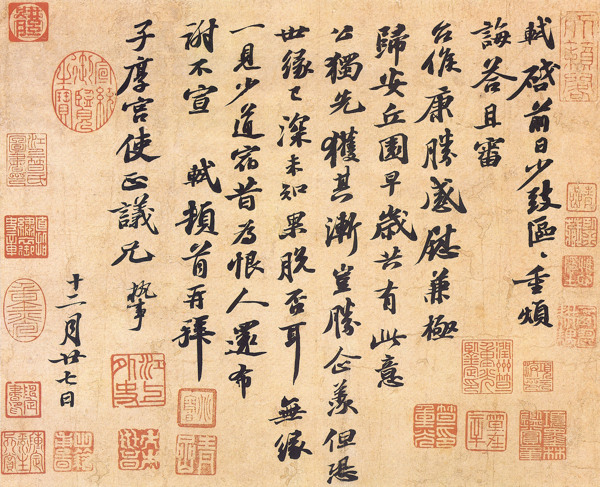 軾啓前日少致區〻重煩
誨答且審
台候康勝感慰兼極
歸安丘園早歲共有此意
公獨先獲其漸豈勝企羨但恐
世緣已深未知果脫否耳無緣
一見少道宿昔為恨人還布
謝不宣 軾頓首再拜
子厚宮使正議兄 執事
十二月廿七日
宣統御覽之寶